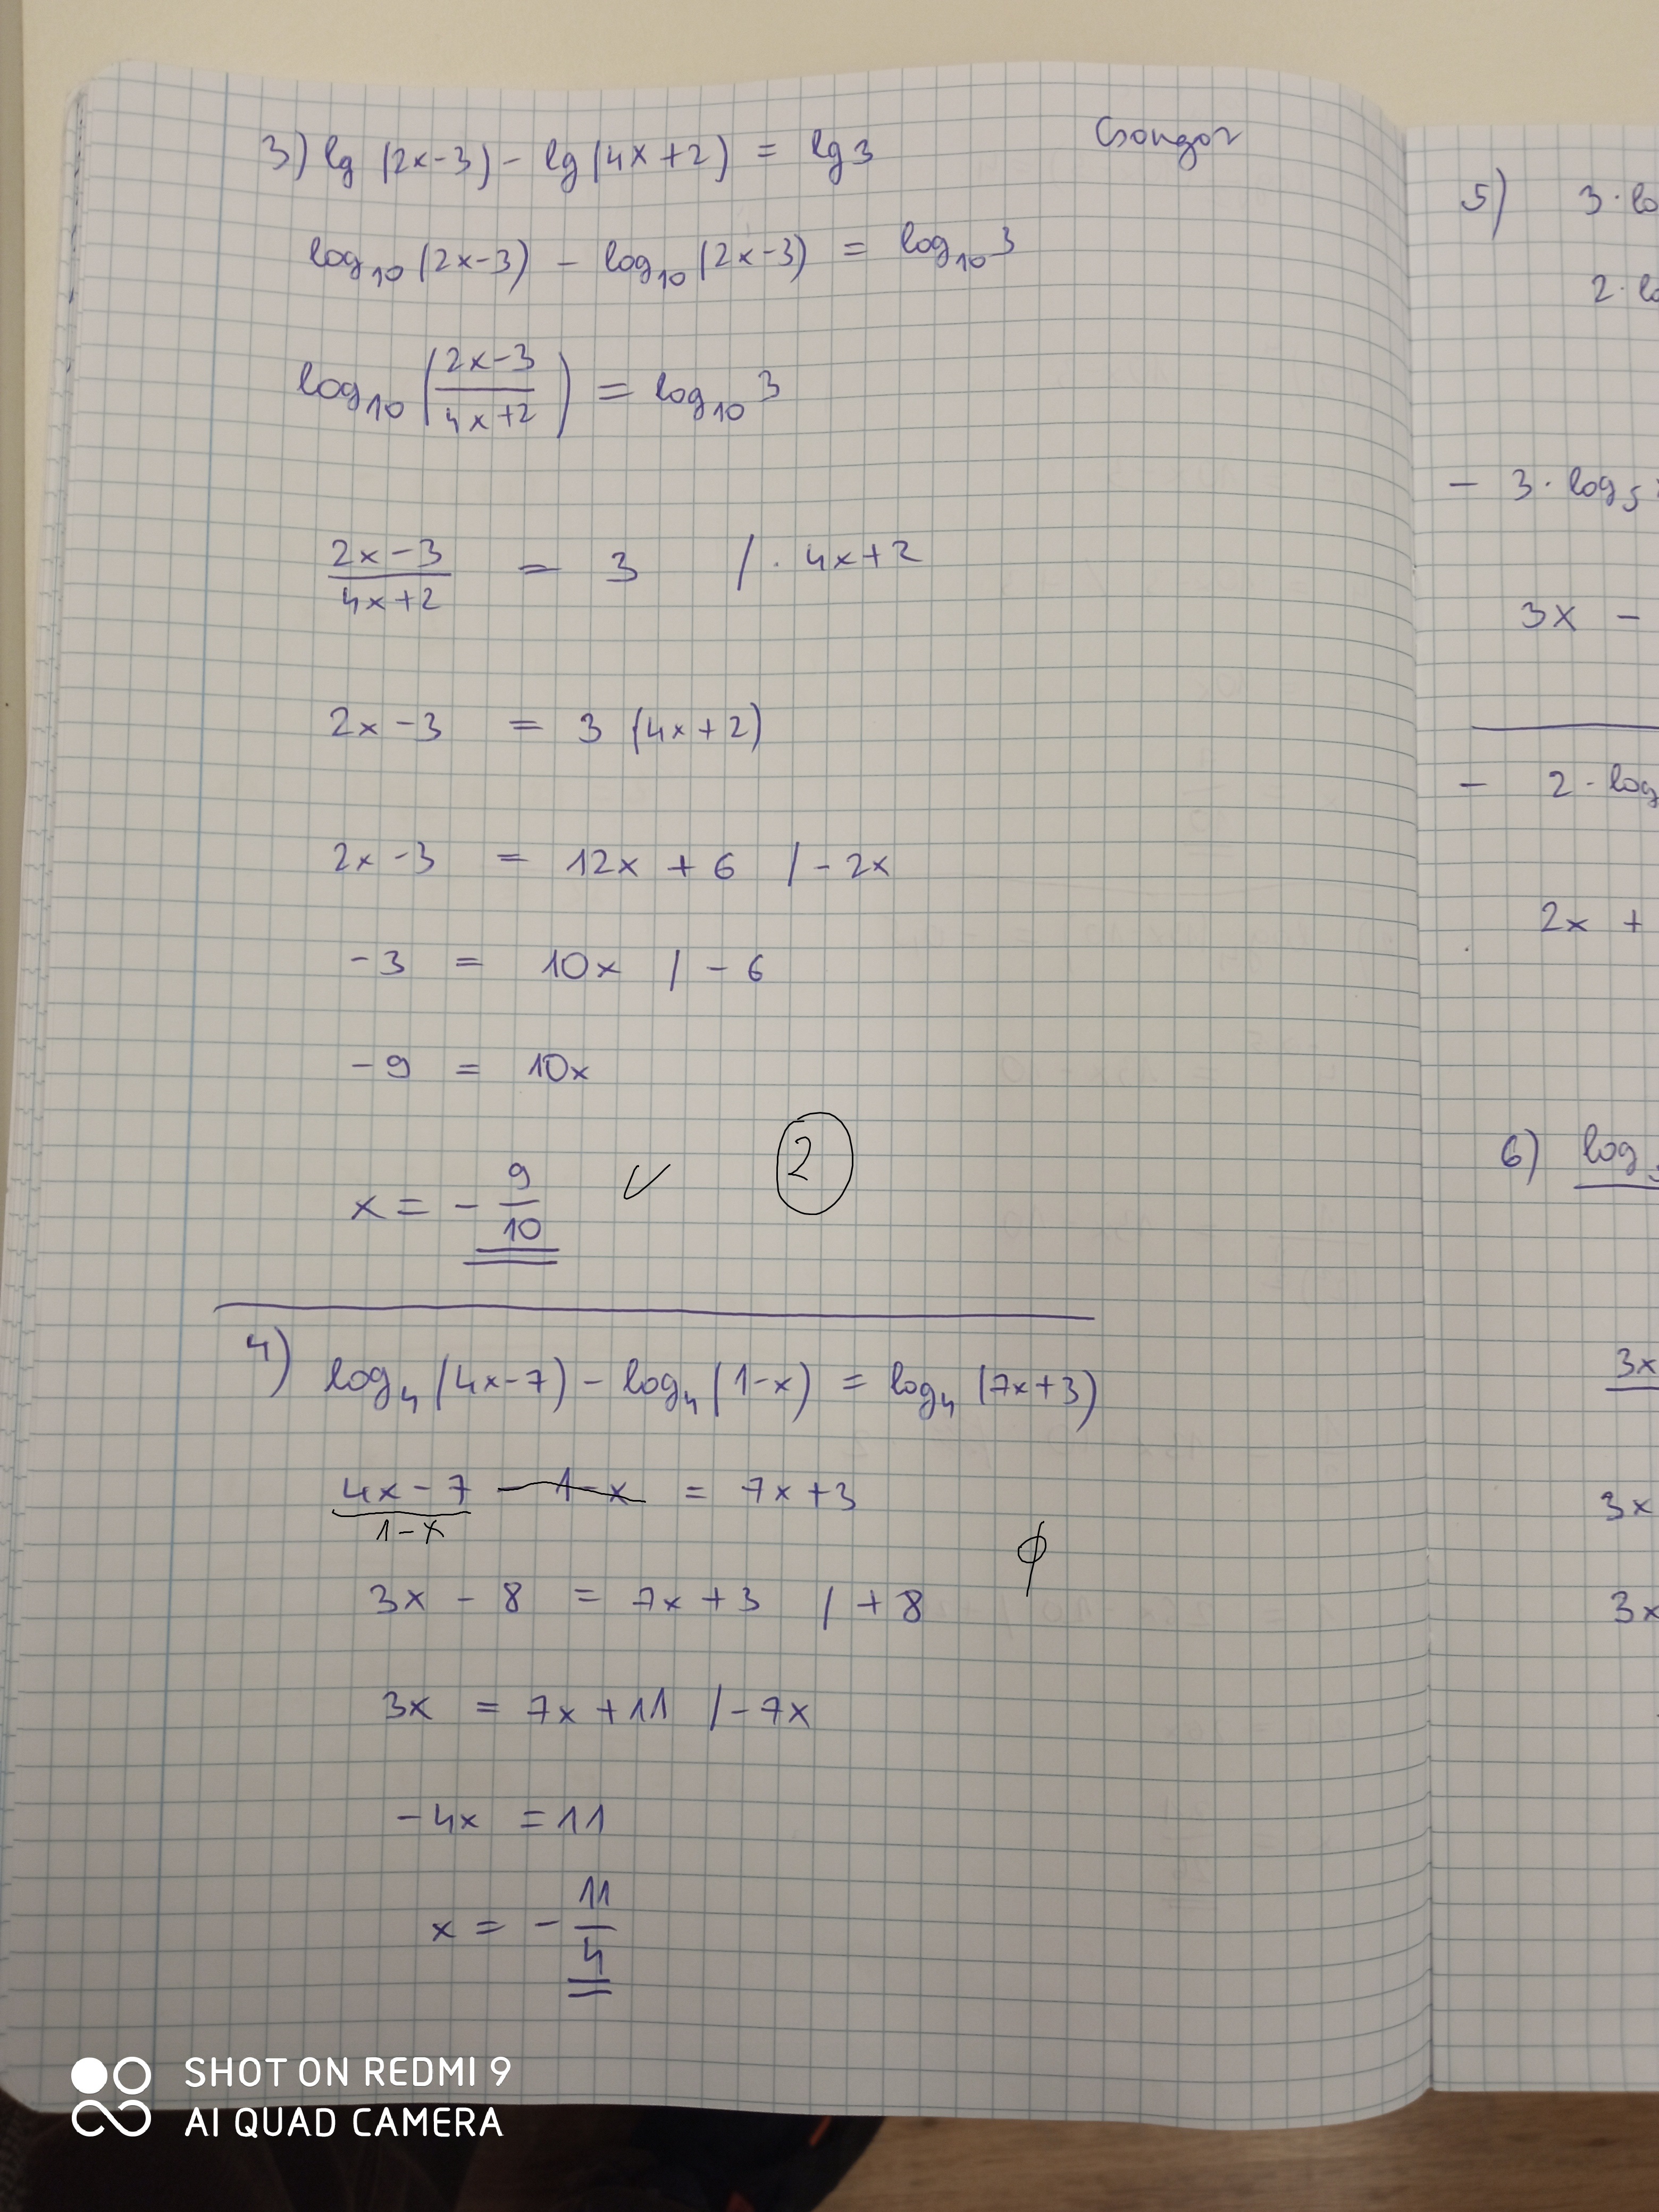 Csongor
3) lg (2x-3) - lg (4x+2) = lg 3
log₁₀ (2x-3) - log₁₀ (2x-3) = log₁₀ 3
log₁₀ ( (2x-3)/(4x+2) ) = log₁₀ 3
(2x-3)/(4x+2) = 3 / · 4x+2
2x-3 = 3 (4x+2)
2x-3 = 12x + 6 / - 2x
-3 = 10x / - 6
-9 = 10x
x = - 9/10 ✓ 2
4) log₄ (4x-7) - log₄ (1-x) = log₄ (7x+3)
4x-7 - 1-x = 7x+3
1-x
ϕ
3x - 8 = 7x+3 / + 8
3x = 7x+11 / - 7x
-4x = 11
x = - 11/4
5) 3·lo
2·lo
- 3·log₅
3x -
- 2·log
2x +
6) log
3x
3x
3x
SHOT ON REDMI 9
AI QUAD CAMERA